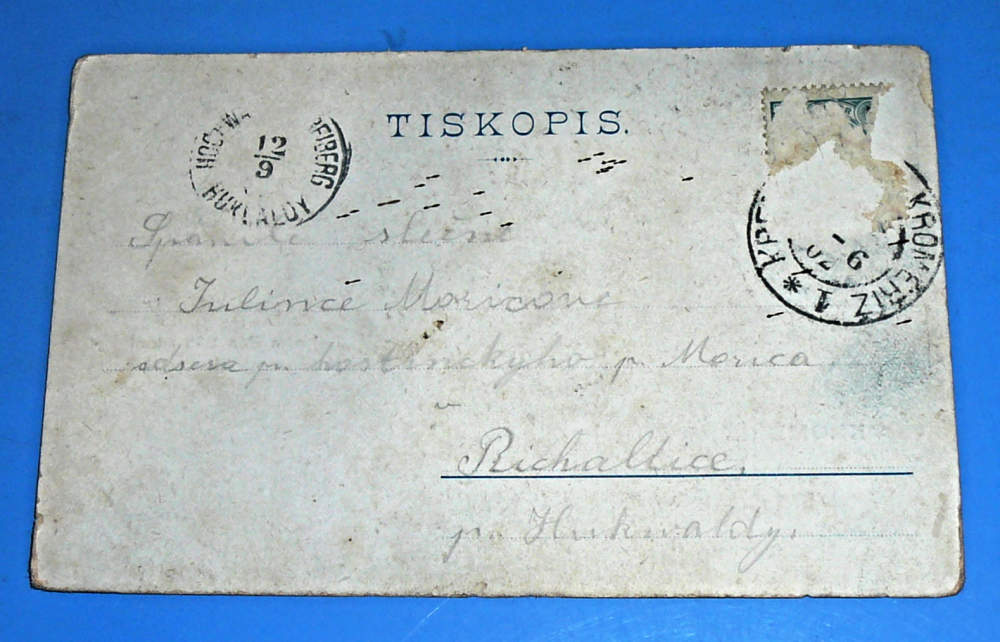 TISKOPIS.
HOCHW. FREIBERG
12/9
HUKVALDY
KROMĚŘÍŽ 1 *
Spanilé slečně
Julince Moricové
p. hostinckyho p. Morica
v
Richaltice.
p. Hukwaldy.